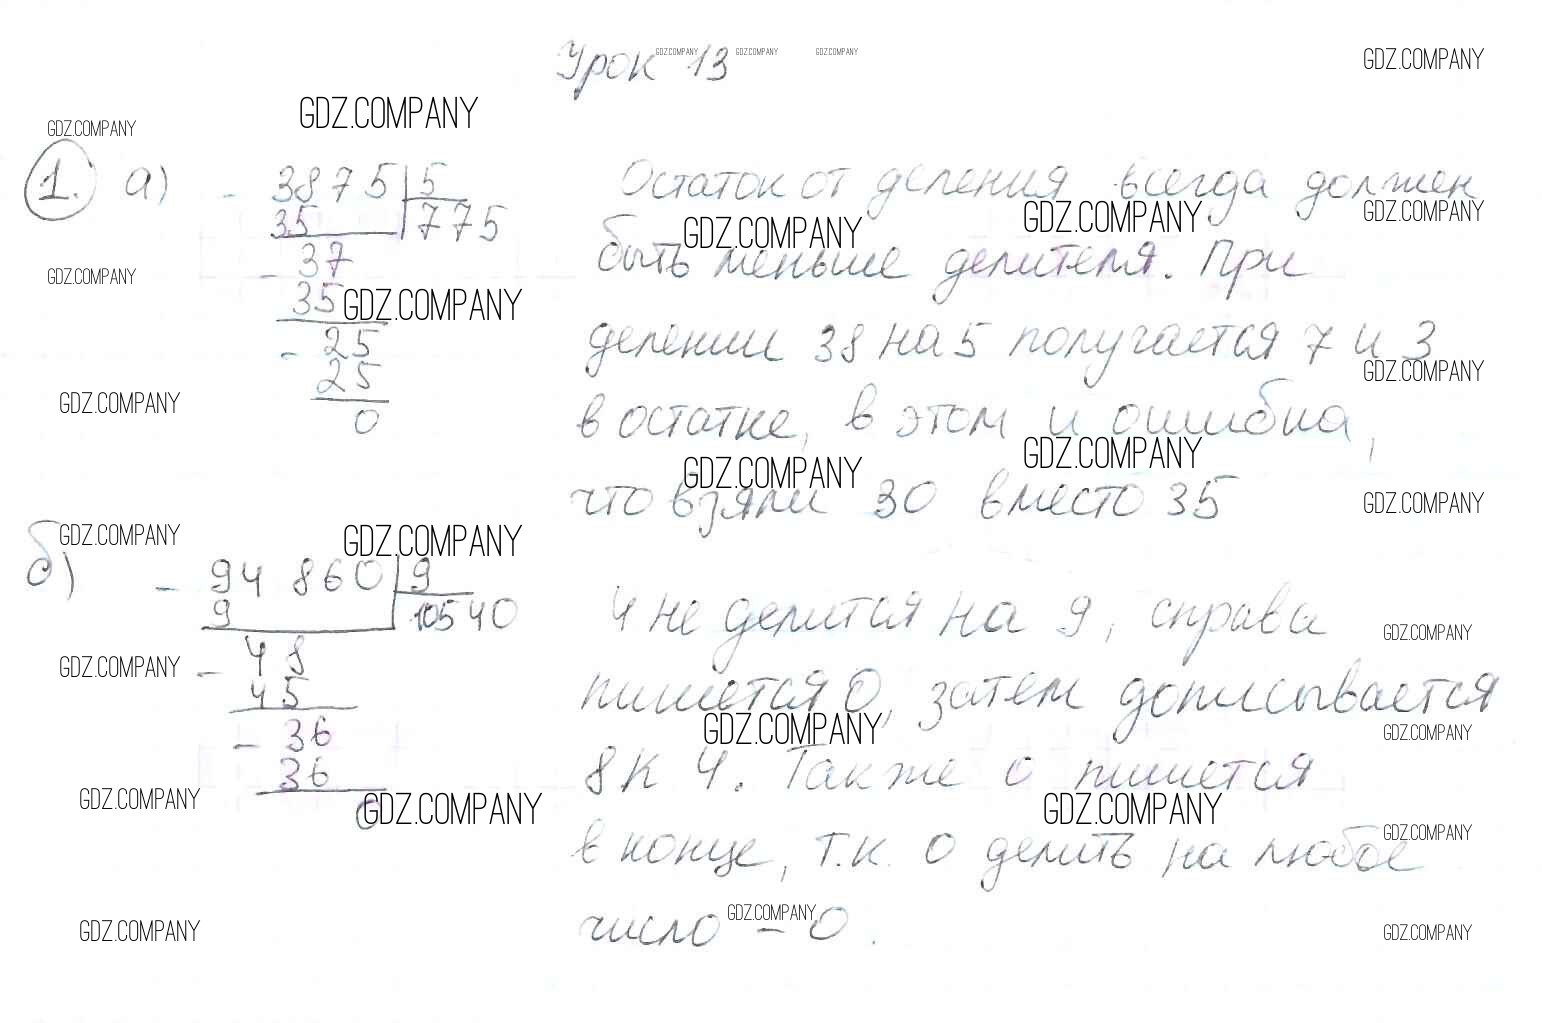 Урок 13
GDZ.COMPANY GDZ.COMPANY GDZ.COMPANY
GDZ.COMPANY
GDZ.COMPANY
GDZ.COMPANY
1. а) - 3875 | 5
35 | 775
- 37
35
- 25
25
0
Остаток от деления всегда должен
GDZ.COMPANY GDZ.COMPANY GDZ.COMPANY
быть меньше делителя. При
GDZ.COMPANY
GDZ.COMPANY
делении 38 на 5 получается 7 и 3
GDZ.COMPANY
GDZ.COMPANY
в остатке, в этом и ошибка,
GDZ.COMPANY GDZ.COMPANY
что взяли 30 вместо 35
GDZ.COMPANY
GDZ.COMPANY GDZ.COMPANY
б) - 94 860 | 9
9 | 10540
- 48
45
- 36
36
0
4 не делится на 9, справа
GDZ.COMPANY
GDZ.COMPANY
пишется 0, затем дописывается
GDZ.COMPANY GDZ.COMPANY
8 к 4. Также 0 пишется
GDZ.COMPANY GDZ.COMPANY GDZ.COMPANY
GDZ.COMPANY
в конце, т.к. 0 делить на любое
GDZ.COMPANY
число - 0.
GDZ.COMPANY GDZ.COMPANY